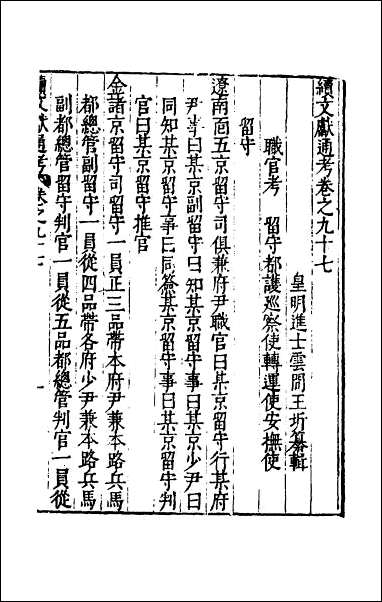 續文獻通考卷之九十七
皇明進士雲間王圻纂輯
職官考 留守都護巡察使轉運使安撫使
留守
遼南面五京留守司俱兼府尹職官曰某京留守行某府
尹事曰某京副留守曰知某京留守事曰某京少尹曰
同知某京留守事曰同簽某京留守事曰某京留守判
官曰某京留守推官
金諸京留守司留守一員正三品帶本府尹兼本路兵馬
都總管副留守一員從四品帶各府少尹兼本路兵馬
副都總管留守判官一員從五品都總管判官一員從
續文獻通考 卷之九十七 一